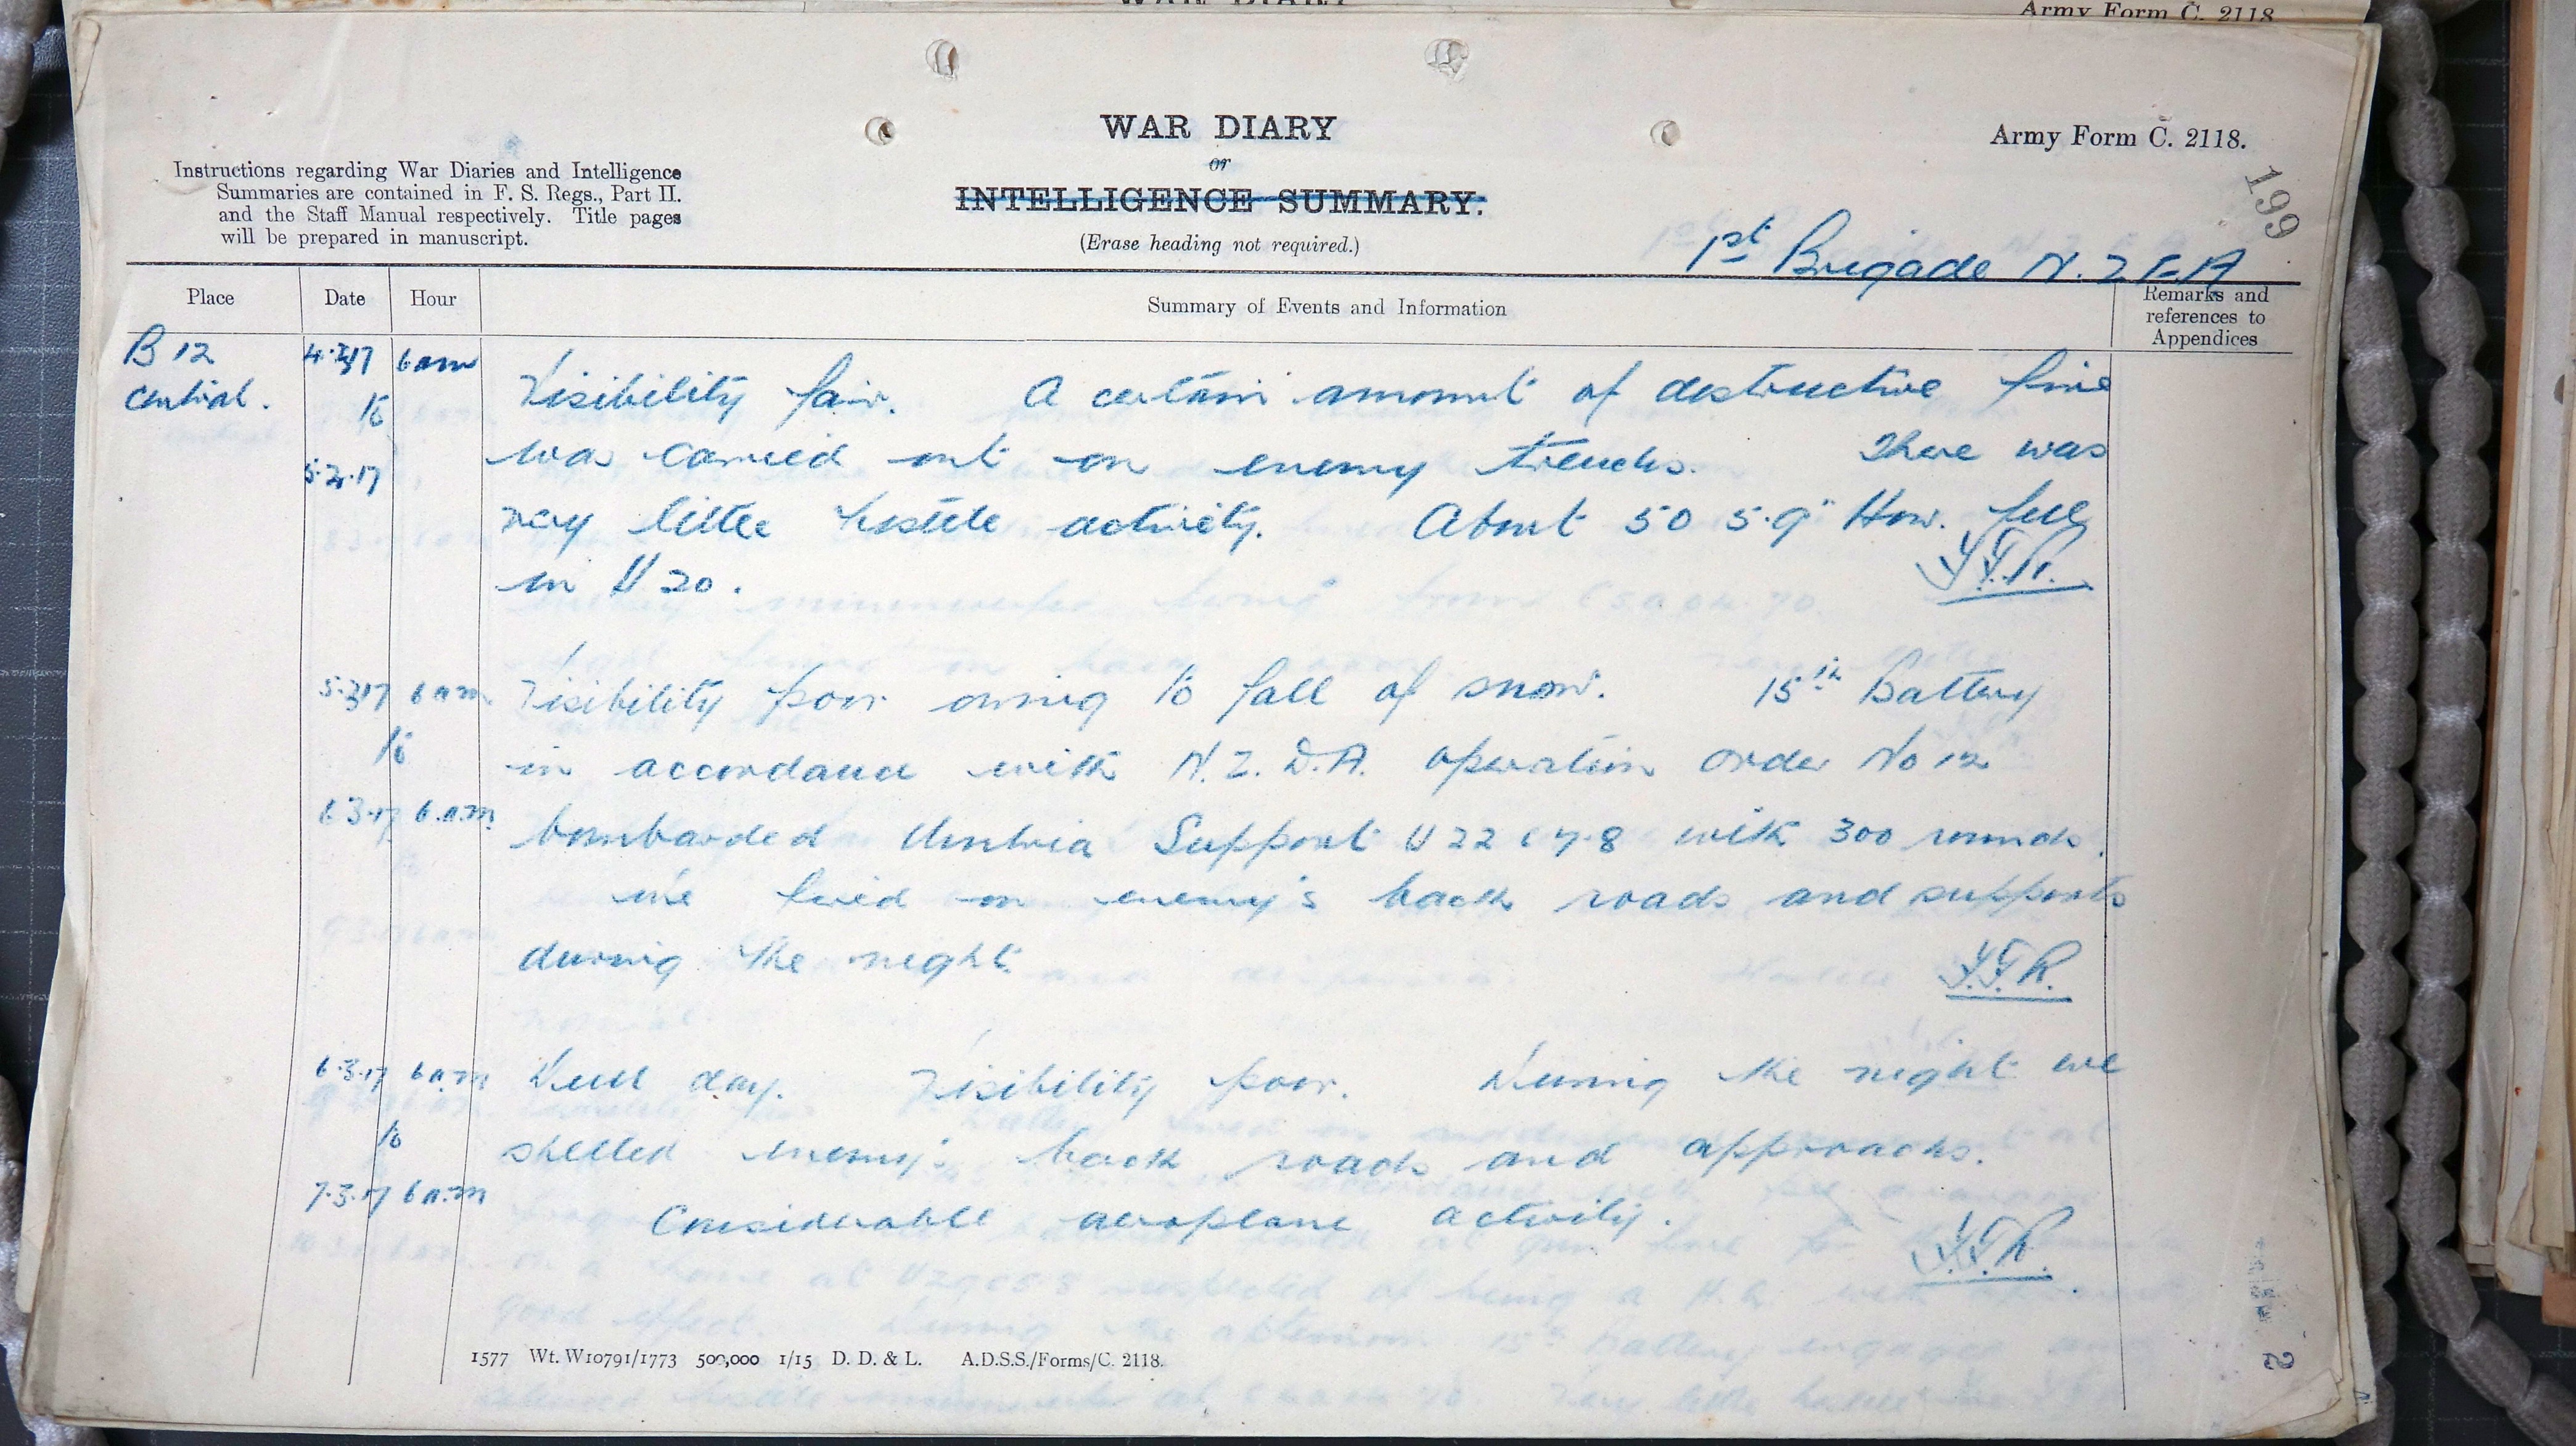 WAR DIARY
Army Form C. 2118
WAR DIARY
or
INTELLIGENCE SUMMARY.
(Erase heading not required.)
Army Form C. 2118.
199
Instructions regarding War Diaries and Intelligence
Summaries are contained in F. S. Regs., Part II.
and the Staff Manual respectively. Title pages
will be prepared in manuscript.
1st Brigade N.Z.F.A
Place Date Hour Summary of Events and Information Remarks and references to Appendices
B 12 4.3.17 6am
Central. to Visibility fair. A certain amount of destructive fire
5.3.17 was carried out on enemy trenches. There was
very little hostile activity. About 50 5.9" How. fell
in U 20. F.R.
5.3.17 6am Visibility poor owing to fall of snow. 15th Battery
to in accordance with N.Z.D.A. operation order No 12
6.3.17 6.a.m bombarded Umbria Support U 22 c 7.8 with 300 rounds.
We fired on enemy's back roads and supports
during the night.
6.3.17 6a.m Dull day. Visibility poor. During the night we
to shelled enemy's back roads and approachs.
7.3.17 6a.m Considerable aeroplane activity.
1577 Wt. W10791/1773 500,000 1/15 D. D. & L. A.D.S.S./Forms/C. 2118.